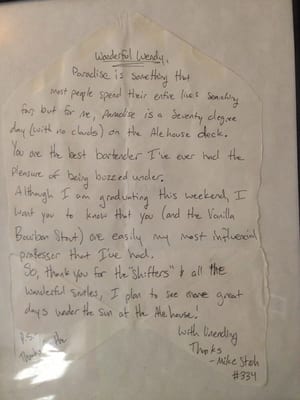 Wonderful Wendy,
Paradise is something that
most people spend their entire lives searching
for, but for me, paradise is a seventy degree
day (with no clouds) on the Alehouse deck.
You are the best bartender I've ever had the
pleasure of being buzzed under.
Although I am graduating this weekend, I
want you to know that you (and the Vanilla
Bourbon Stout) are easily my most influencial
professor that I've had.
So, thank you for the "Shifters" & all the
wonderful smiles, I plan to see more great
days under the sun at the Alehouse!
With unending
Thanks
- Mike
#334
P.S.